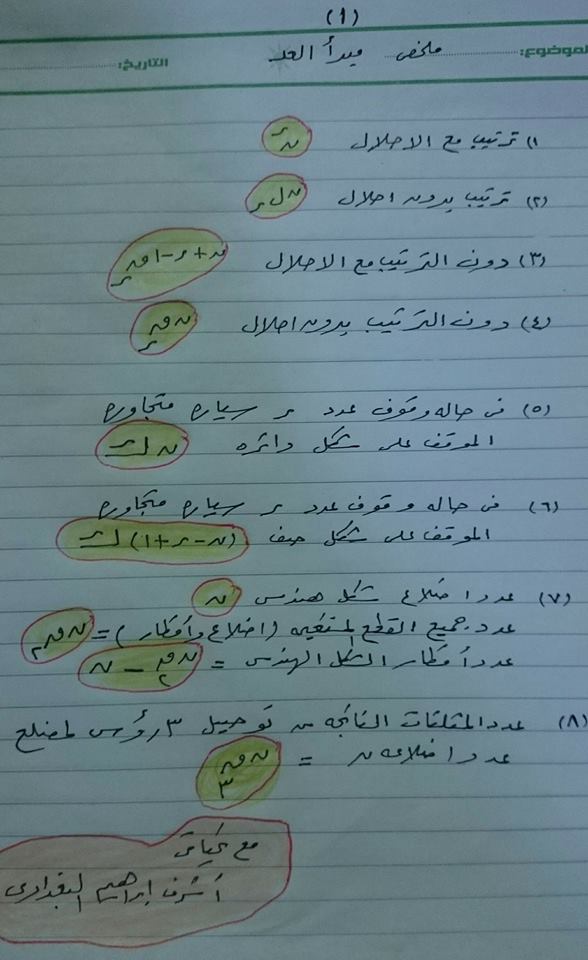 (١)
الموضوع: ملخص مبدأ العد التاريخ:
(١ ترتيب مع الاحلال نʳ
(٢) ترتيب بدون احلال نلر
(٣) دون الترتيب مع الاحلال ن+ر-١قر
(٤) دون الترتيب بدون احلال نقر
(٥) فى حاله وقوف عدد ر سياره متجاوره
الموقف على شكل دائره ن ⌊ر
(٦) فى حاله وقوف عدد ر سياره متجاوره
الموقف على شكل صف (ن-ر+١) ⌊ر
(٧) عدد اضلاع شكل هندسى ن
عدد جميع القطع المستقيمه (اضلاع وأقطار) = نق٢
عدد أقطار الشكل الهندسى = نق٢ - ن
(٨) عدد المثلثات الناتجه من توصيل ٣ رؤس لمضلع
عدد اضلاعه ن = نق٣
مع تحياتى
أشرف ابراهيم البغدادى